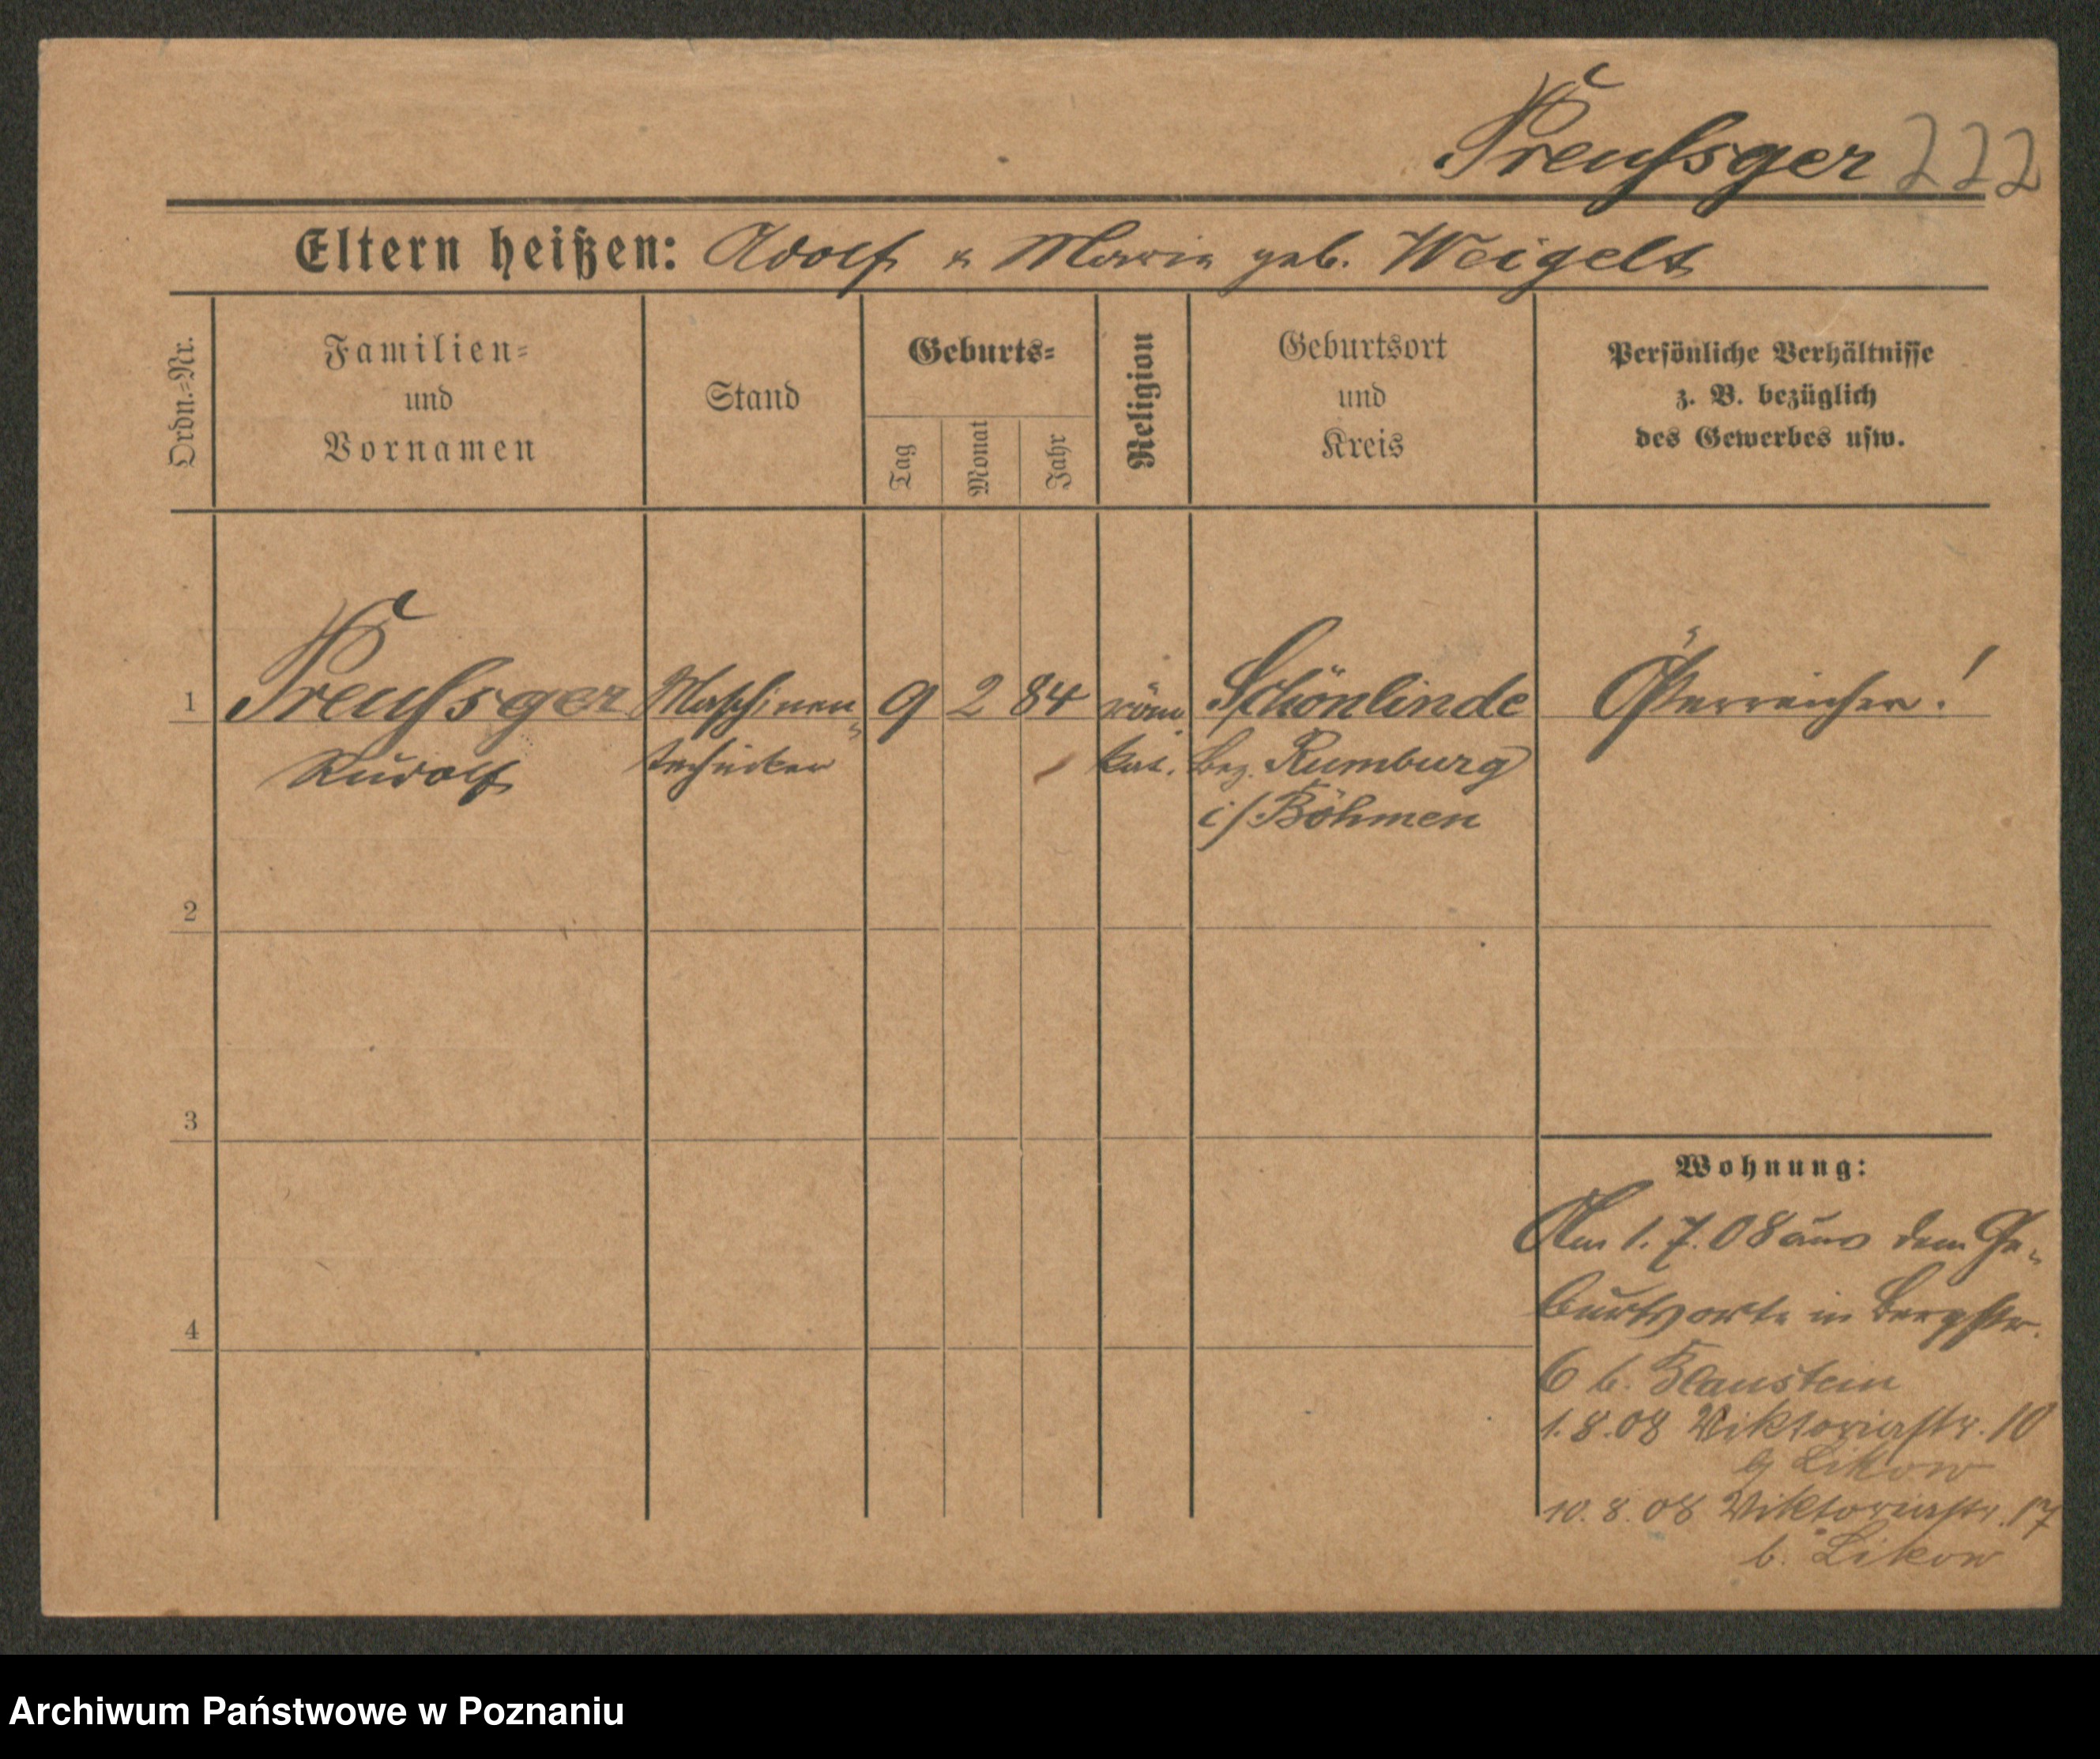 Preussger 222
Eltern heißen: Adolf u Maria geb. Weigelt
Ordn.=Nr.
Familien=
und
Vornamen
Stand
Geburts=
Tag
Monat
Jahr
Religion
Geburtsort
und
Kreis
Persönliche Verhältnisse
z. B. bezüglich
des Gewerbes usw.
1 Preussger Maschinen= 9 2 84 röm Schönlinde Österreicher!
Rudolf techniker kat. Bez. Rumburg
i/Böhmen
2
3
4
Wohnung:
Am 1.7.08 aus dem Ge=
burtsorte in Bergstr.
6 b. Blaustein
1.8.08 Viktoriastr. 10
b Likow
10.8.08 Viktoriastr. 17
b. Likow
Archiwum Państwowe w Poznaniu